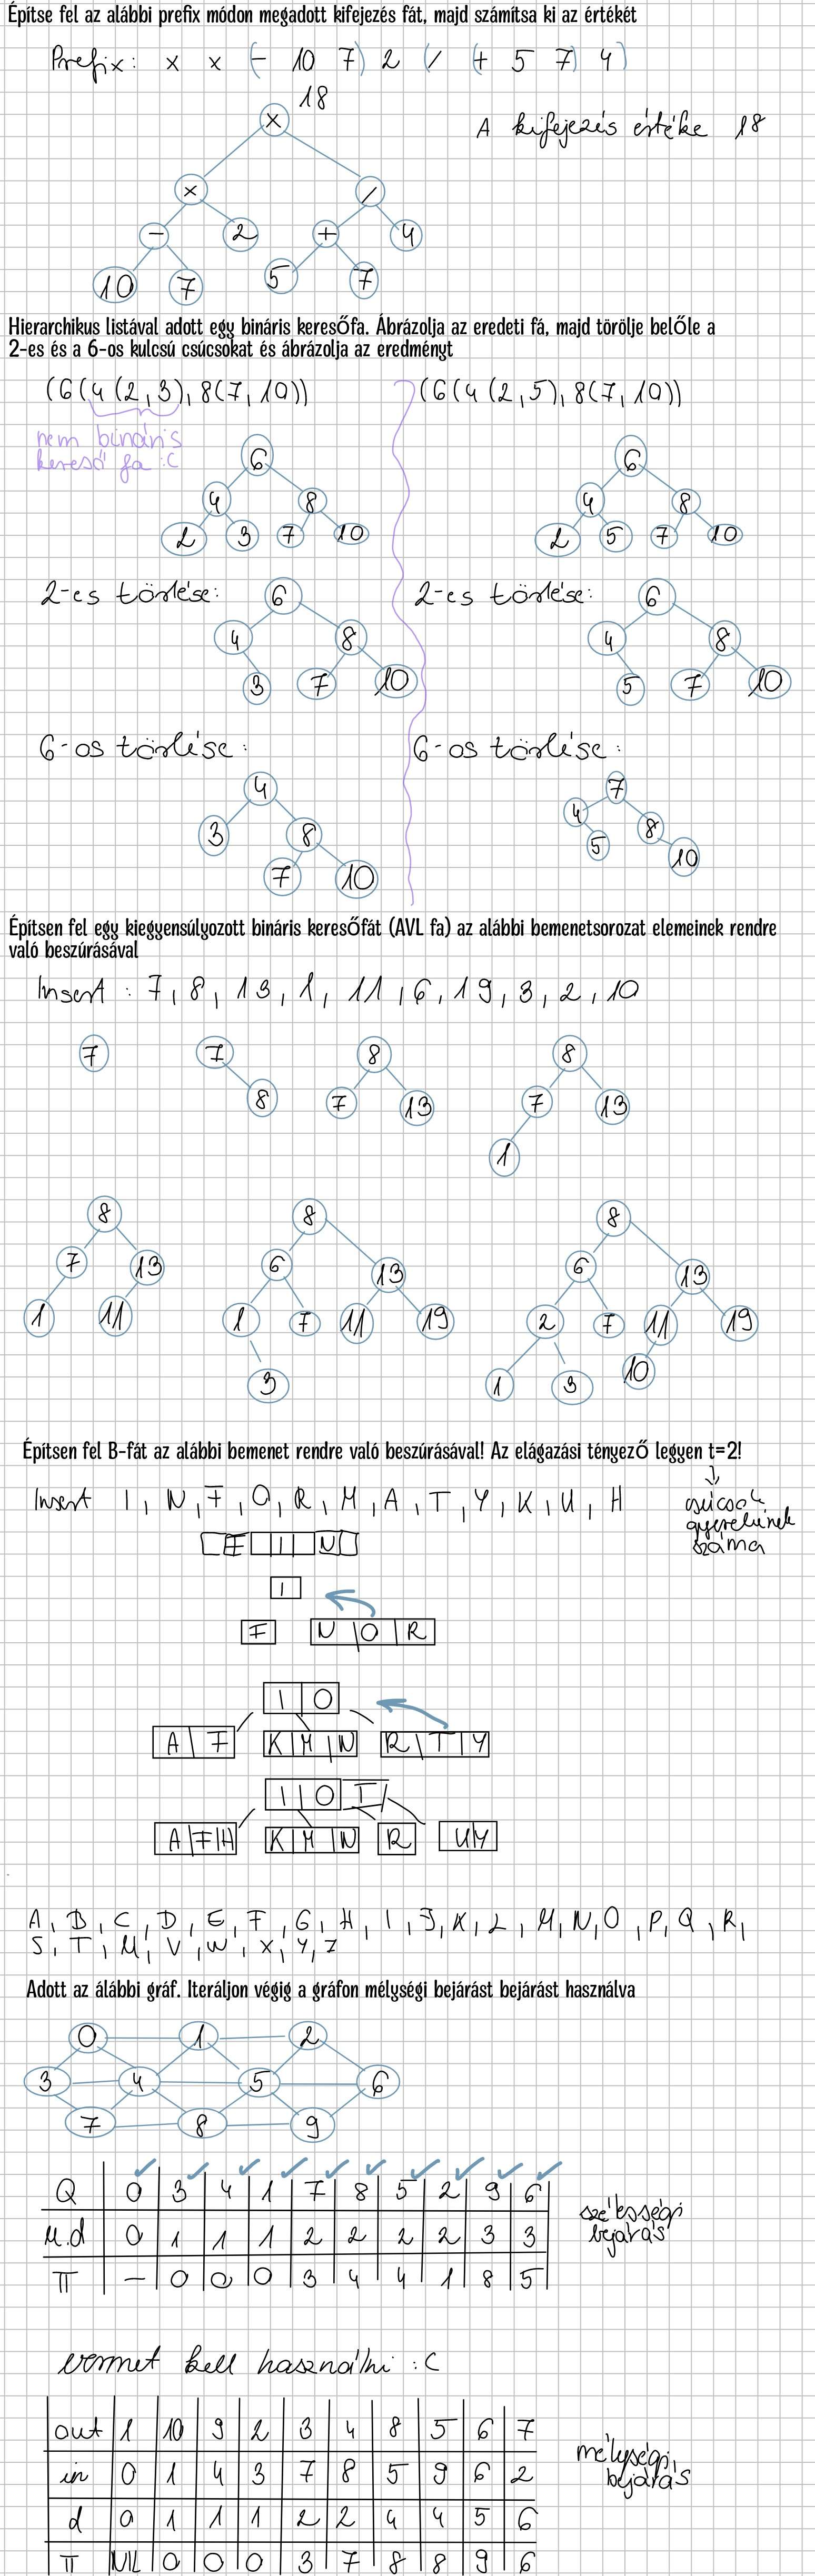 Építse fel az alábbi prefix módon megadott kifejezés fát, majd számítsa ki az értékét
Prefix: x x (- 10 7) 2 (/ (+ 5 7) 4)
18
x
A kifejezés értéke 18
x /
- 2 + 4
10 7 5 7
Hierarchikus listával adott egy bináris keresőfa. Ábrázolja az eredeti fá, majd törölje belőle a
2-es és a 6-os kulcsú csúcsokat és ábrázolja az eredményt
(6(4(2,3),8(7,10)) (6(4(2,5),8(7,10))
nem bináris
kereső fa :C
6 6
4 8 4 8
2 3 7 10 2 5 7 10
2-es törlése: 6 2-es törlése: 6
4 8 4 8
3 7 10 5 7 10
6-os törlése: 6-os törlése:
4 7
3 8 4 8
7 10 5 10
Építsen fel egy kiegyensúlyozott bináris keresőfát (AVL fa) az alábbi bemenetsorozat elemeinek rendre
való beszúrásával
Insert : 7, 8, 13, 1, 11, 6, 19, 3, 2, 10
7 7 8 8
8 7 13 7 13
1
8 8 8
7 13 6 13 6 13
1 11 1 7 11 19 2 7 11 19
3 1 3 10
Építsen fel B-fát az alábbi bemenet rendre való beszúrásával! Az elágazási tényező legyen t=2!
Insert I, N, F, O, R, M, A, T, Y, K, U, H
csúcsok
gyerekeinek
száma
F I N
I
F N O R
I O
A F K M N R T Y
I O T
A F H K M N R U Y
A, B, C, D, E, F, G, H, I, J, K, L, M, N, O, P, Q, R,
S, T, U, V, W, X, Y, Z
Adott az álábbi gráf. Iteráljon végig a gráfon mélységi bejárást bejárást használva
0 1 2
3 4 5 6
7 8 9
Q 0 3 4 1 7 8 5 2 9 6
szélességi
bejárás
u.d 0 1 1 1 2 2 2 2 3 3
π - 0 0 0 3 4 4 1 8 5
vermet kell használni :C
out 1 10 9 2 3 4 8 5 6 7
mélységi
bejárás
in 0 1 4 3 7 8 5 9 6 2
d 0 1 1 1 2 2 4 4 5 6
π NIL 0 0 0 3 7 8 8 9 6